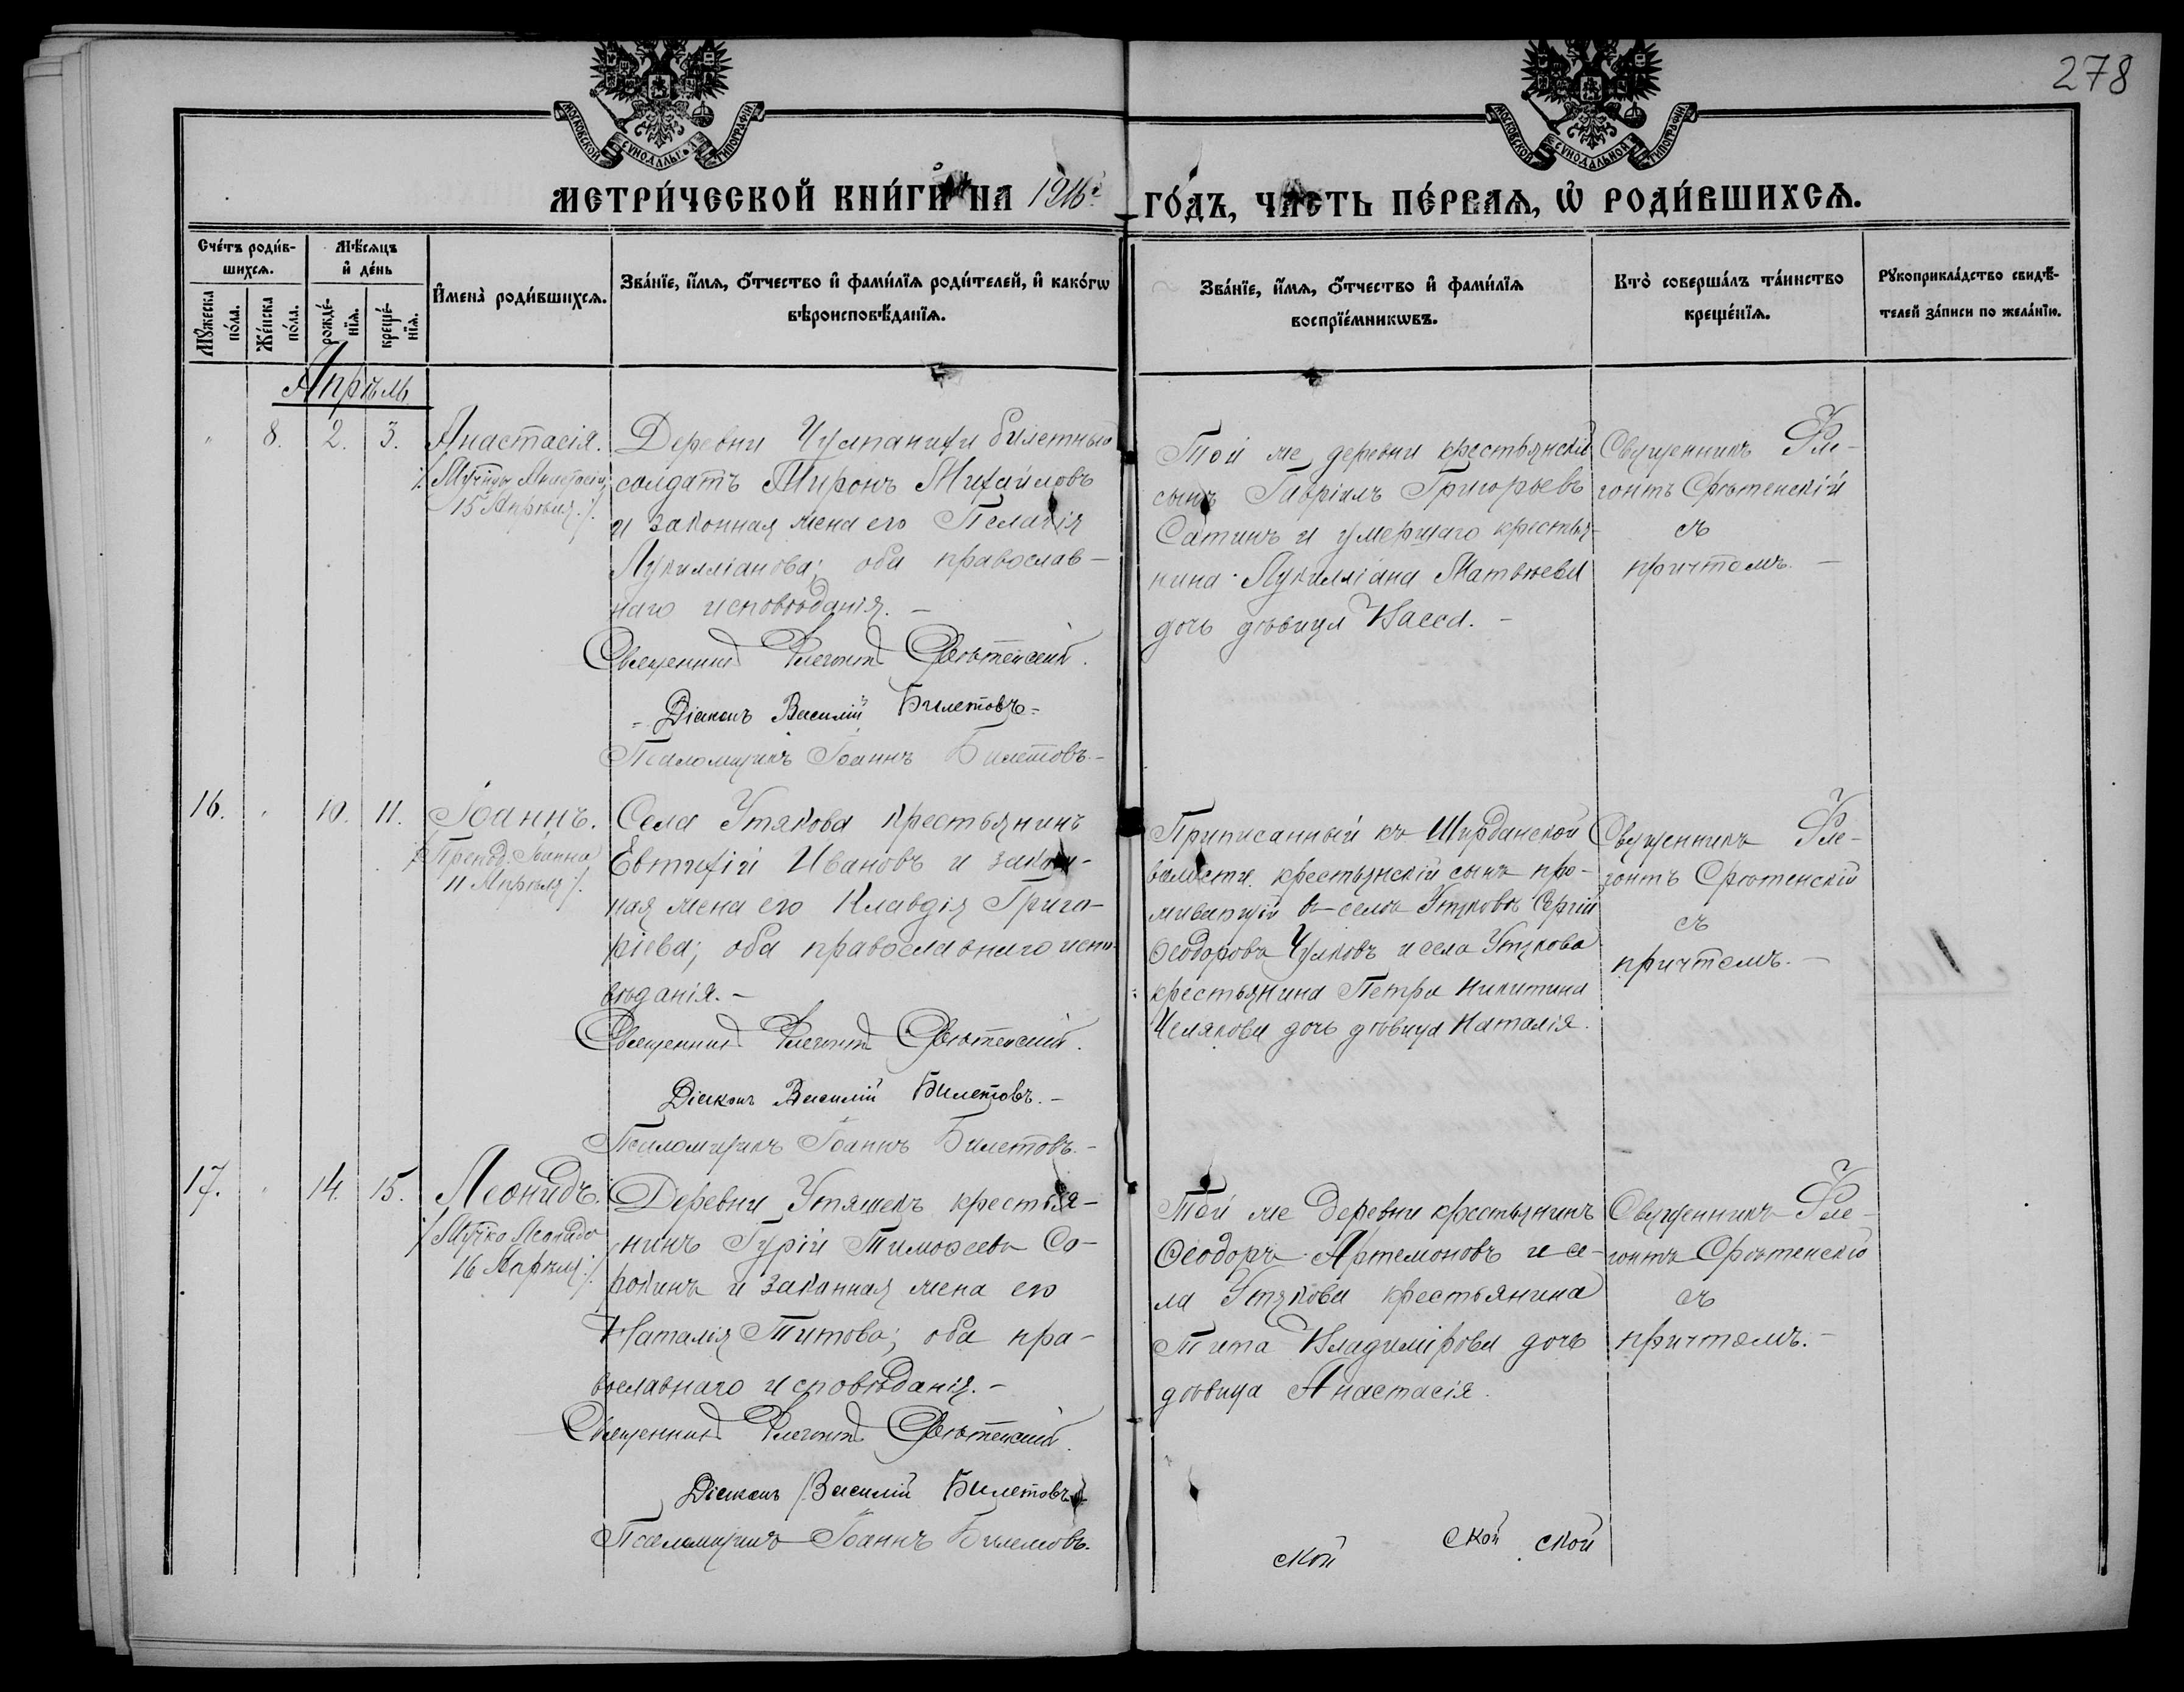 278
МОСКОВСКОЙ СУНОДАЛЬНОЙ ТИПОГРАФІИ
МОСКОВСКОЙ СУНОДАЛЬНОЙ ТИПОГРАФІИ
МЕТРИ́ЧЕСКОЙ КНИ́ГИ НА 1916 г. ГО́ДЪ, ЧАСТЬ ПЕ́РВАѦ, Ѡ РОДИ́ВШИХСѦ.
Сче́тъ роди́в-
шихсѧ.
Мꙋжеска по́ла.
Же́нска по́ла.
Мѣ́сѧцъ
и де́нь
рожде́-
нїѧ.
креще́-
нїѧ.
Имена̀ роди́вшихсѧ.
Зва́нїе, и́мѧ, ѻ́тчество и фами́лїѧ роди́телей, и како́гѡ
вѣроисповѣ́данїѧ.
Зва́нїе, и́мѧ, ѻ́тчество и фами́лїѧ
воспрїе́мникѡвъ.
Кто̀ соверша́лъ та́инство
креще́нїѧ.
Рꙋкоприкла́дство свидѣ́-
телей за́писи по жела́нїю.
Апрѣль
" 8. 2. 3. Анастасія.
/: Мучицы Анастасіи
15 Апрѣля :/.
Деревни билетный
солдатъ Миронъ Михайловъ
и законная жена его Пелагія
Лукилліанова; оба православ-
наго исповѣданія. –
Священникъ Флегонтъ Срѣтенскій.
Діаконъ Василій Билетовъ.
Псаломщикъ Іоаннъ Билетовъ. –
Той же деревни крестьянскій
сынъ Гавріилъ Григорьевъ
Сатинъ и умершаго крестья-
нина Лукилліана Матвѣева
дочь дѣвица Васса. –
Священникъ Фле-
гонтъ Срѣтенскій
съ
причтомъ. –
16. " 10. 11. Іоаннъ.
/: Препод. Іоанна
11 Апрѣля :/.
Села Утякова крестьянинъ
Евтихій Ивановъ и закон-
ная жена его Клавдія Григо-
ріева; оба православнаго испо-
вѣданія. –
Священникъ Флегонтъ Срѣтенскій.
Діаконъ Василій Билетовъ. –
Псаломщикъ Іоаннъ Билетовъ. –
Приписанный къ Ширданской
волости крестьянскій сынъ про-
живающій въ селѣ Утяковѣ Сергій
Ѳеодоровъ Чулковъ и села Утякова
крестьянина Петра Никитина
дочь дѣвица Наталія.
Священникъ Фле-
гонтъ Срѣтенскій
съ
причтомъ. –
17. " 14. 15. Леонидъ.
/: Мучка Леонида
16 Апрѣля :/.
Деревни Утяшекъ крестья-
нинъ Гурій Тимоѳеевъ Со-
рокинъ и законная жена его
Наталія Титова; оба пра-
вославнаго исповѣданія. –
Священникъ Флегонтъ Срѣтенскій.
Діаконъ Василій Билетовъ
Псаломщикъ Іоаннъ Билетовъ.
Той же деревни крестьянинъ
Ѳеодоръ Артемоновъ и се-
ла Утякова крестьянина
Тита Владимірова дочь
дѣвица Анастасія.
Священникъ Фле-
гонтъ Срѣтенскій
съ
причтомъ. –
ской ской ской